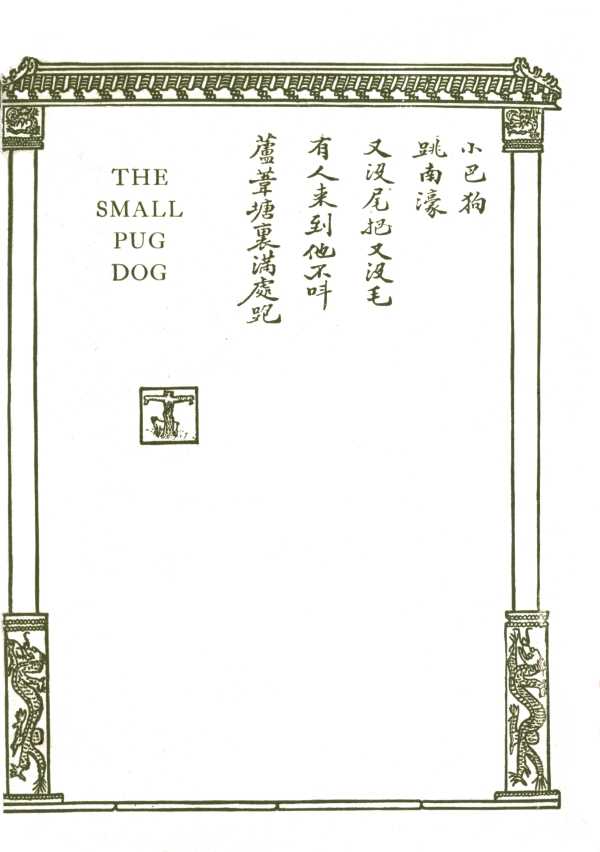 小巴狗
跳南濠
又没尾把又没毛
有人来到他不呌
蘆葦塘裏滿處跑
THE
SMALL
PUG
DOG